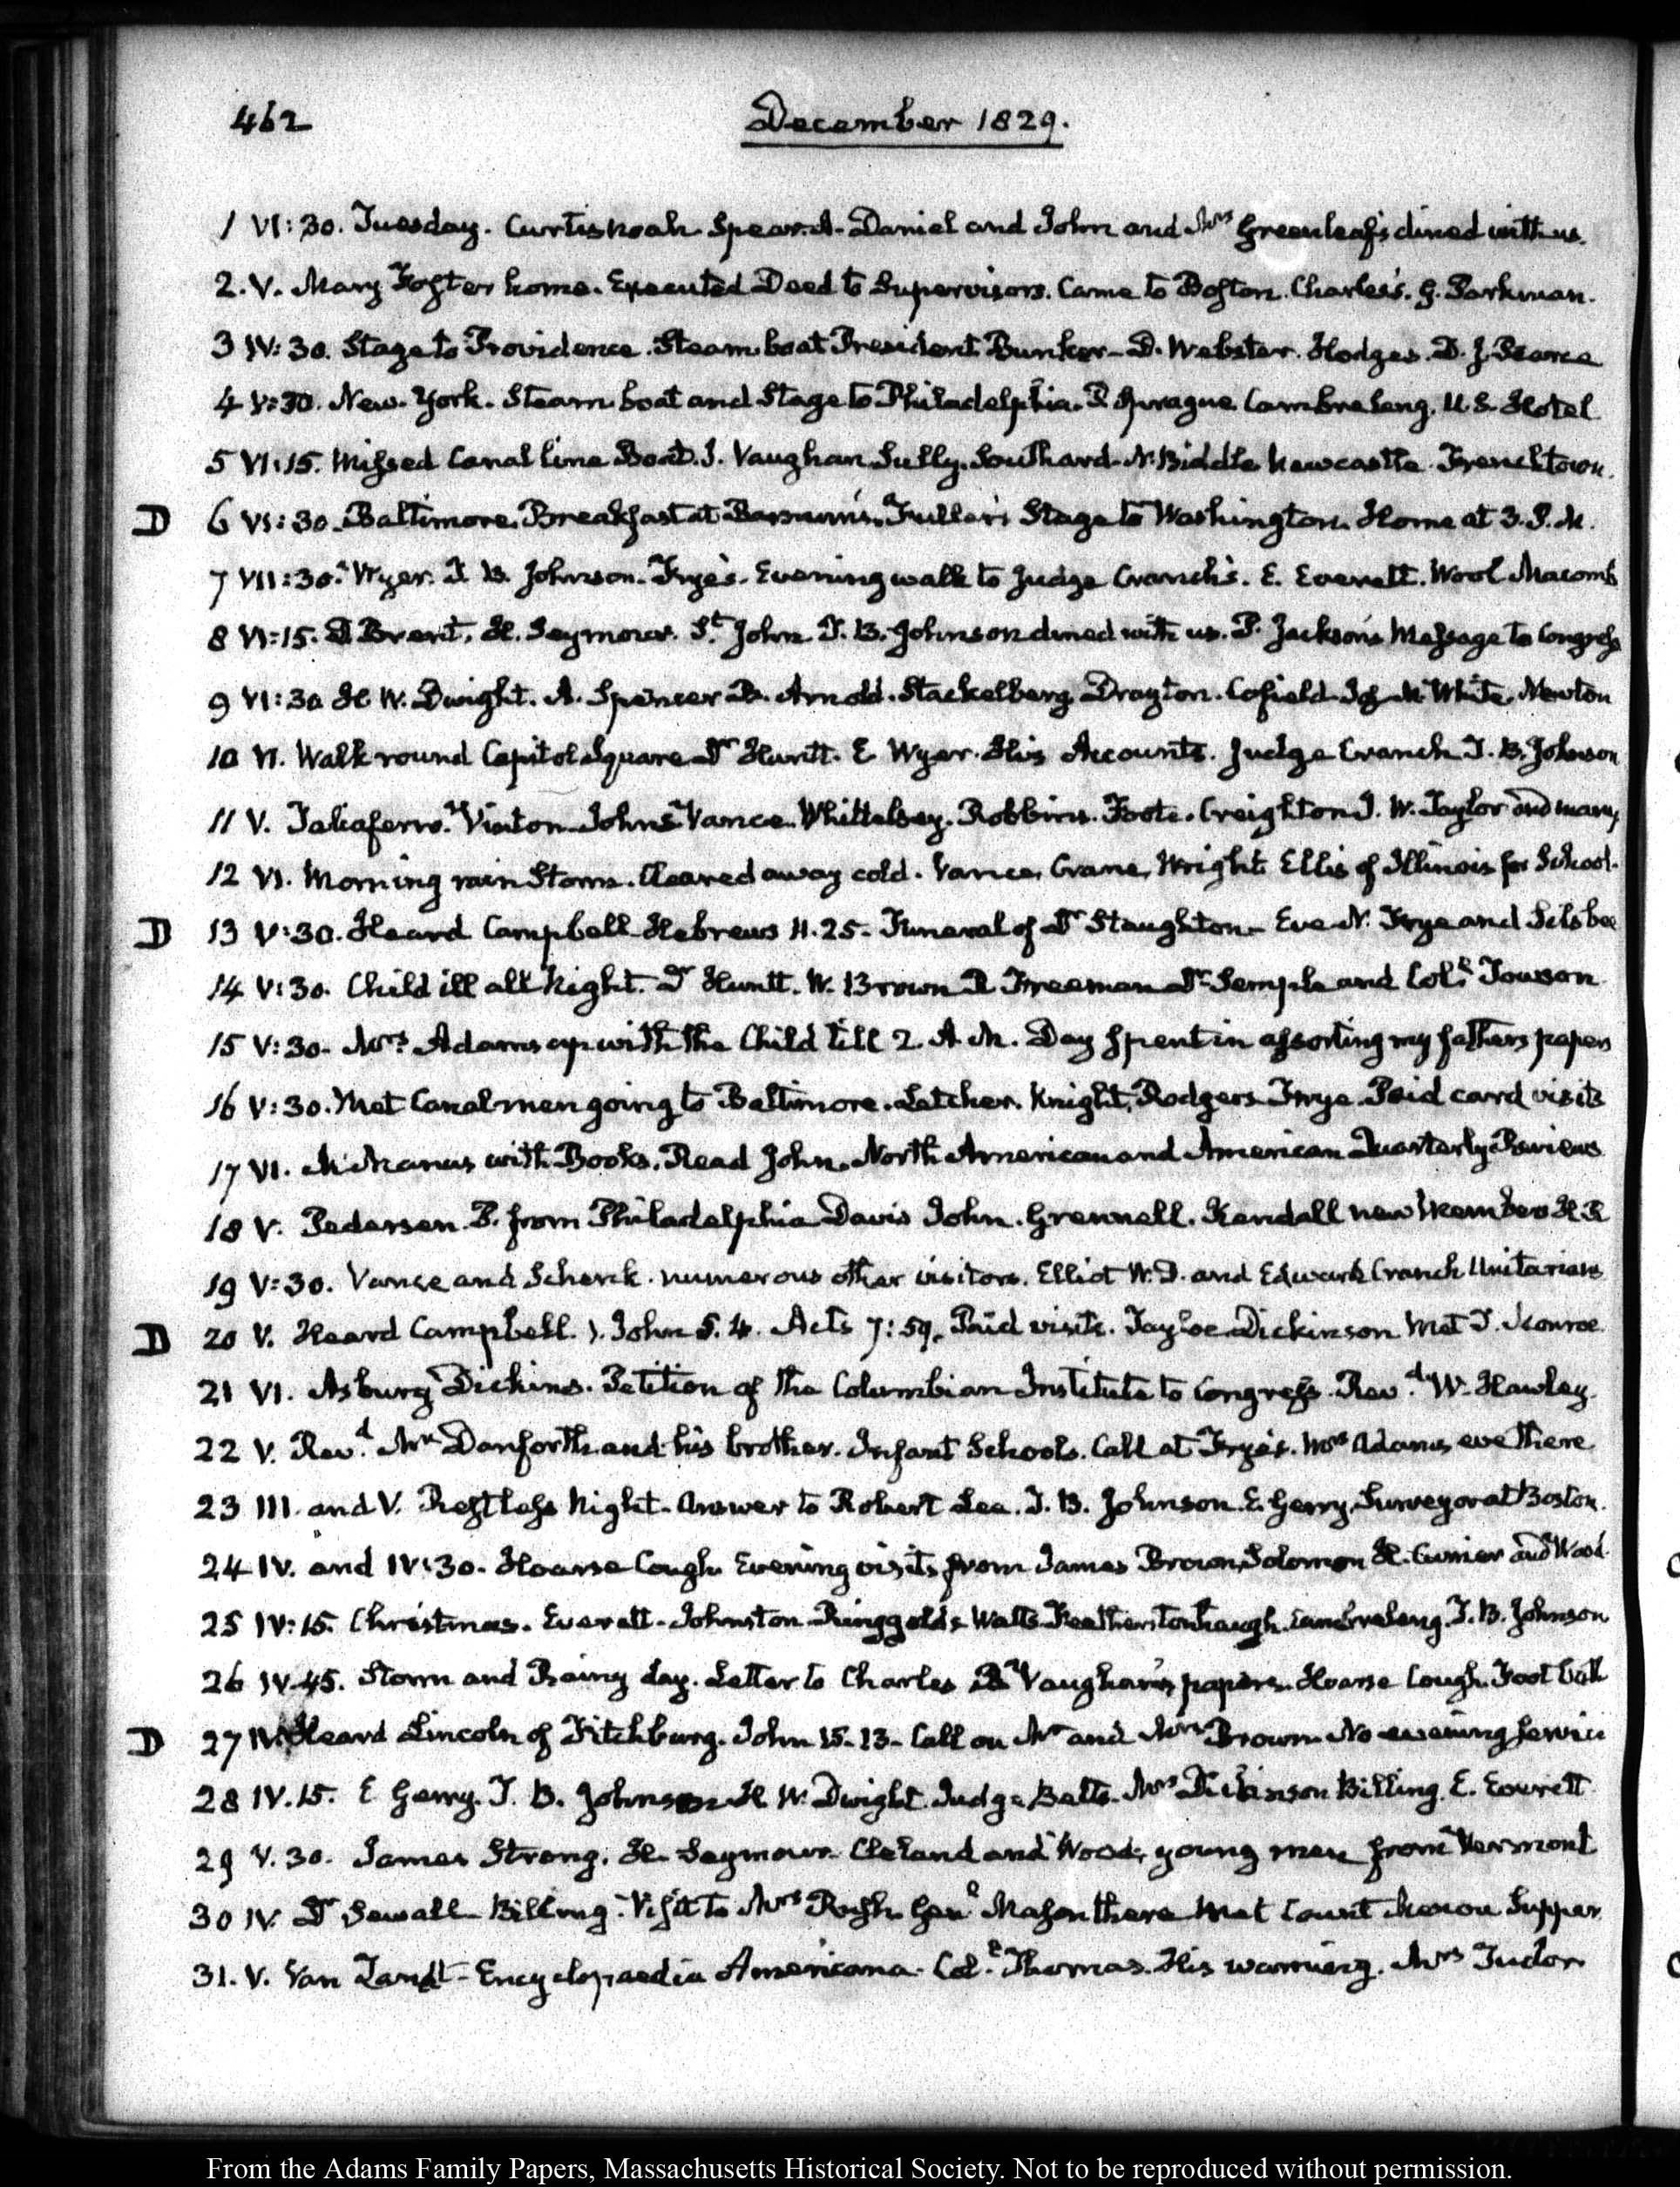 462
December 1829.
1 VI:30. Tuesday. Curtis Noah. Spear. A. Daniel and John and Mrs Greenleaf's dined with us.
2. V. Mary Foster home. Executed Deed to Supervisors. Came to Boston. Charles's. G. Parkman.
3 IV:30. Stage to Providence. Steam boat President Bunker. D. Webster. Hodges. D. J. Pearce
4 V:30. New-York. Steam boat and Stage to Philadelphia. P. Sprague Cambreleng. U.S. Hotel
5 VI:15. Missed Canal line Boat. J. Vaughan Sully. Southard. N. Biddle Newcastle. Frenchtown.
D 6 VI:30. Baltimore. Breakfast at Barnum's. Fuller's Stage to Washington. Home at 3. P.M.
7 VII:30. Wyer. T. B. Johnson. Frye's. Evening walk to Judge Cranch's. E. Everett. Wool Macomb
8 VI:15. D Brent. H. Seymour. St John T. B. Johnson dined with us. P. Jackson's Message to Congress
9 VI:30 H W. Dwight. A. Spencer B. Arnold. Stackelberg Drayton. Cofield Jos. M White. Newton
10 VI. Walk round Capitol Square Dr Huntt. E Wyer. His Accounts. Judge Cranch T. B. Johnson
11 V. Taliaferro. Vinton Johns Vance Whittelsey. Robbins. Foote. Creighton J. W. Taylor and many
12 VI. Morning rain Storm. Cleared away cold. Vance, Crane, Wright Ellis of Illinois for School.
D 13 V:30. Heard Campbell Hebrews 11.25. Funeral of Dr Staughton. Eve N. Frye and Silsbee
14 V:30. Child ill all Night. Dr Huntt. W. Brown D Freeman Dr Semple and Coll. Towson
15 V:30. Mrs. Adams up with the Child till 2. A.M. Day spent in assorting my fathers papers
16 V:30. Met Canal men going to Baltimore. Letcher. Knight, Rodgers Frye. Paid card visits
17 VI. McManus with Books. Read John. North American and American Quarterly Reviews
18 V. Pedersen P. from Philadelphia Davis John. Grennell. Kendall new Member H.R
19 V:30. Vance and Schenk. numerous other visitors. Elliot W. D. and Edward Cranch Unitarians
D 20 V. Heard Campbell. 1. John 5. 4. Acts 7:59. Paid visits. Tayloe Dickinson Met J. Monroe
21 VI. Asbury Dickins. Petition of the Columbian Institute to Congress. Revd. W. Hawley.
22 V. Revd. Mr Danforth and his brother. Infant Schools. Call at Frye's. Mrs Adams eve there
23 III. and V. Restless Night. Answer to Robert Lee. T. B. Johnson. E. Gerry Surveyor at Boston.
24 IV. and IV:30. Hoarse Cough. Evening visits from James Brown, Solomon H. Cumier and Wood.
25 IV:15. Christmas. Everett. Johnston Ringgold's Watts Featherstonhaugh. Cambreleng. T. B. Johnson
26 IV.45. Storm and Rainy day. Letter to Charles B Vaughan's papers. Hoarse Cough. Foot ball
D 27 IV. Heard Lincoln of Fitchburg. John 15.13. Call on Mr and Mrs Brown No evening Service
28 IV.15. E Gerry. T. B. Johnson H W. Dwight Judge Betts. Mrs Dickinson Billing. E. Everett
29 V.30. James Strong. H Seymour Cleland and Wood, young men from Vermont
30 IV. Dr Sewall Billing. Visit to Mrs Rush. Genl Mason there Met Count Menou Supper
31. V. Van Zandt. Encyclopaedia Americana. Coll. Thomas. His warning. Mrs Tudor
From the Adams Family Papers, Massachusetts Historical Society. Not to be reproduced without permission.